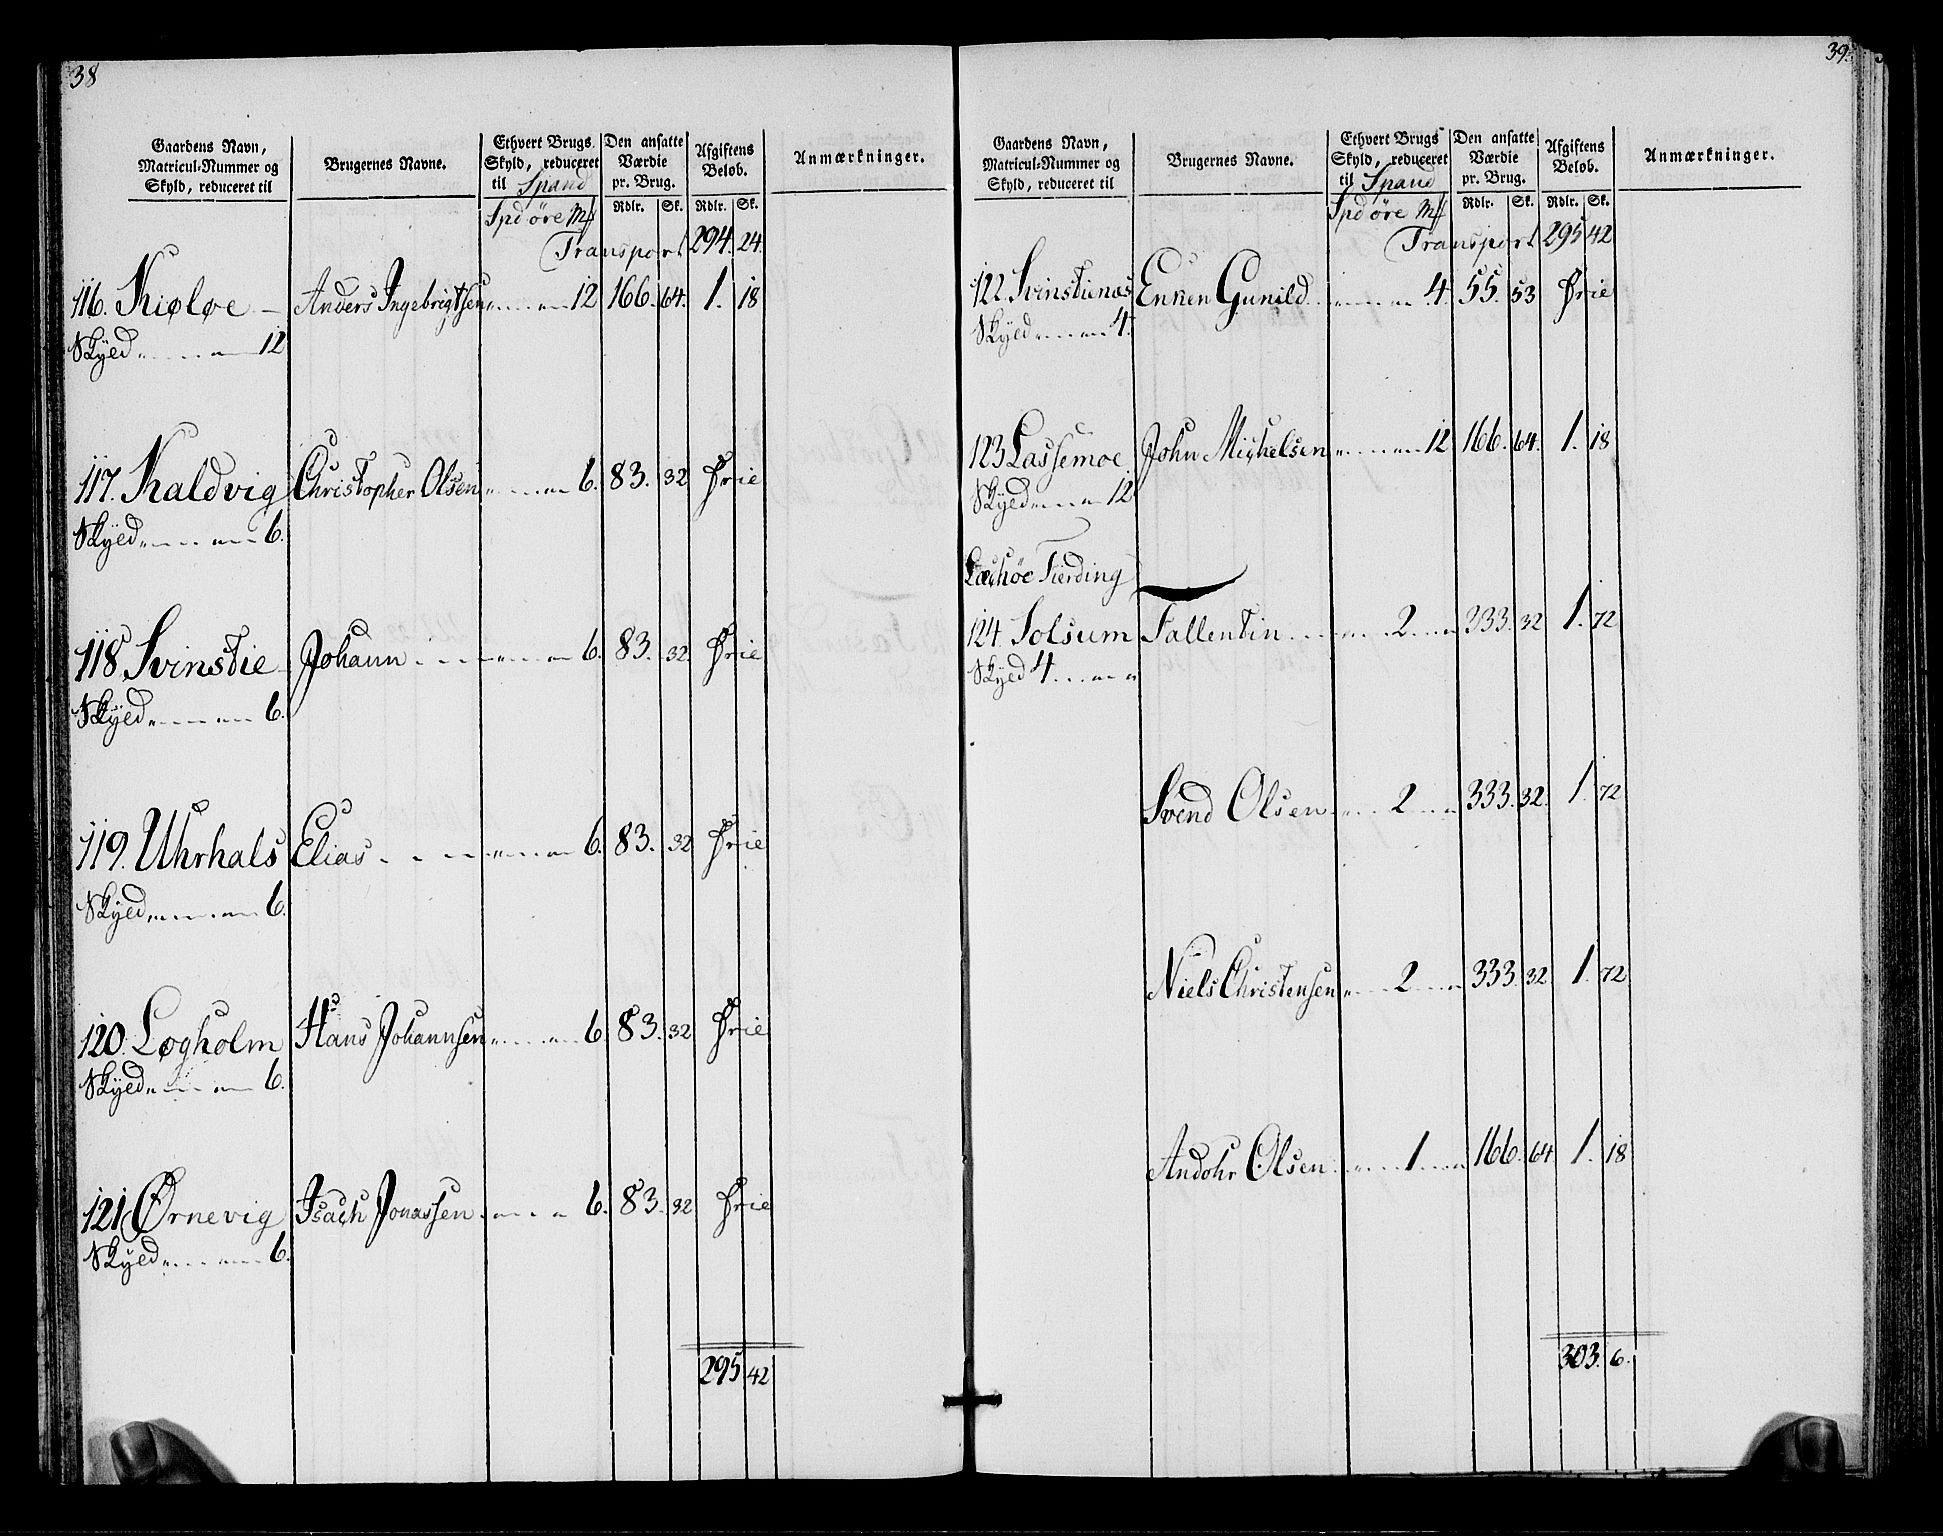 38
Gaardens Navn, Matricul-Nummer og Skyld, reduceret til | Brugernes Navne. | Ethvert Brugs Skyld, reduceret til Spand | Den ansatte Værdie pr. Brug. | Afgiftens Beløb. | Anmærkninger.
Spd öre | Rdlr. | Sk. | Rdlr. | Sk.
Transport 294. 24.
116. Kioløe Anders Ingebrigtsen 12 166. 64. 1. 18
Skyld 12
117. Kaldvig Christopher Olsen 6. 83. 32 Frie
Skyld 6.
118. Svinstie Johann 6. 83. 32. Frie
Skyld 6.
119. Uhrhals Elias 6. 83. 32 Frie
Skyld 6.
120. Logholm Hans Johannsen 6. 83. 32 Frie
Skyld 6.
121. Ørnevig Isach Jonassen 6. 83. 32 Frie
Skyld 6.
295 42
39.
Gaardens Navn, Matricul-Nummer og Skyld, reduceret til | Brugernes Navne. | Ethvert Brugs Skyld, reduceret til Spand | Den ansatte Værdie pr. Brug. | Afgiftens Beløb. | Anmærkninger.
Spd öre | Rdlr. | Sk. | Rdlr. | Sk.
Transport 295 42
122. Svinstienæs Enken Gunild 4. 55. 53 Frie
Skyld 4.
123 Lassemoe John Michelsen 12 166. 64. 1. 18
Skyld 12
Fierding
124. Solsum Fallentin 2 333. 32 1. 72
Skyld 4
Svend Olsen 2 333. 32. 1. 72
Niels Christensen 2 333. 32 1. 72
Andohr Olsen 1 166. 64 1. 18
303. 6.